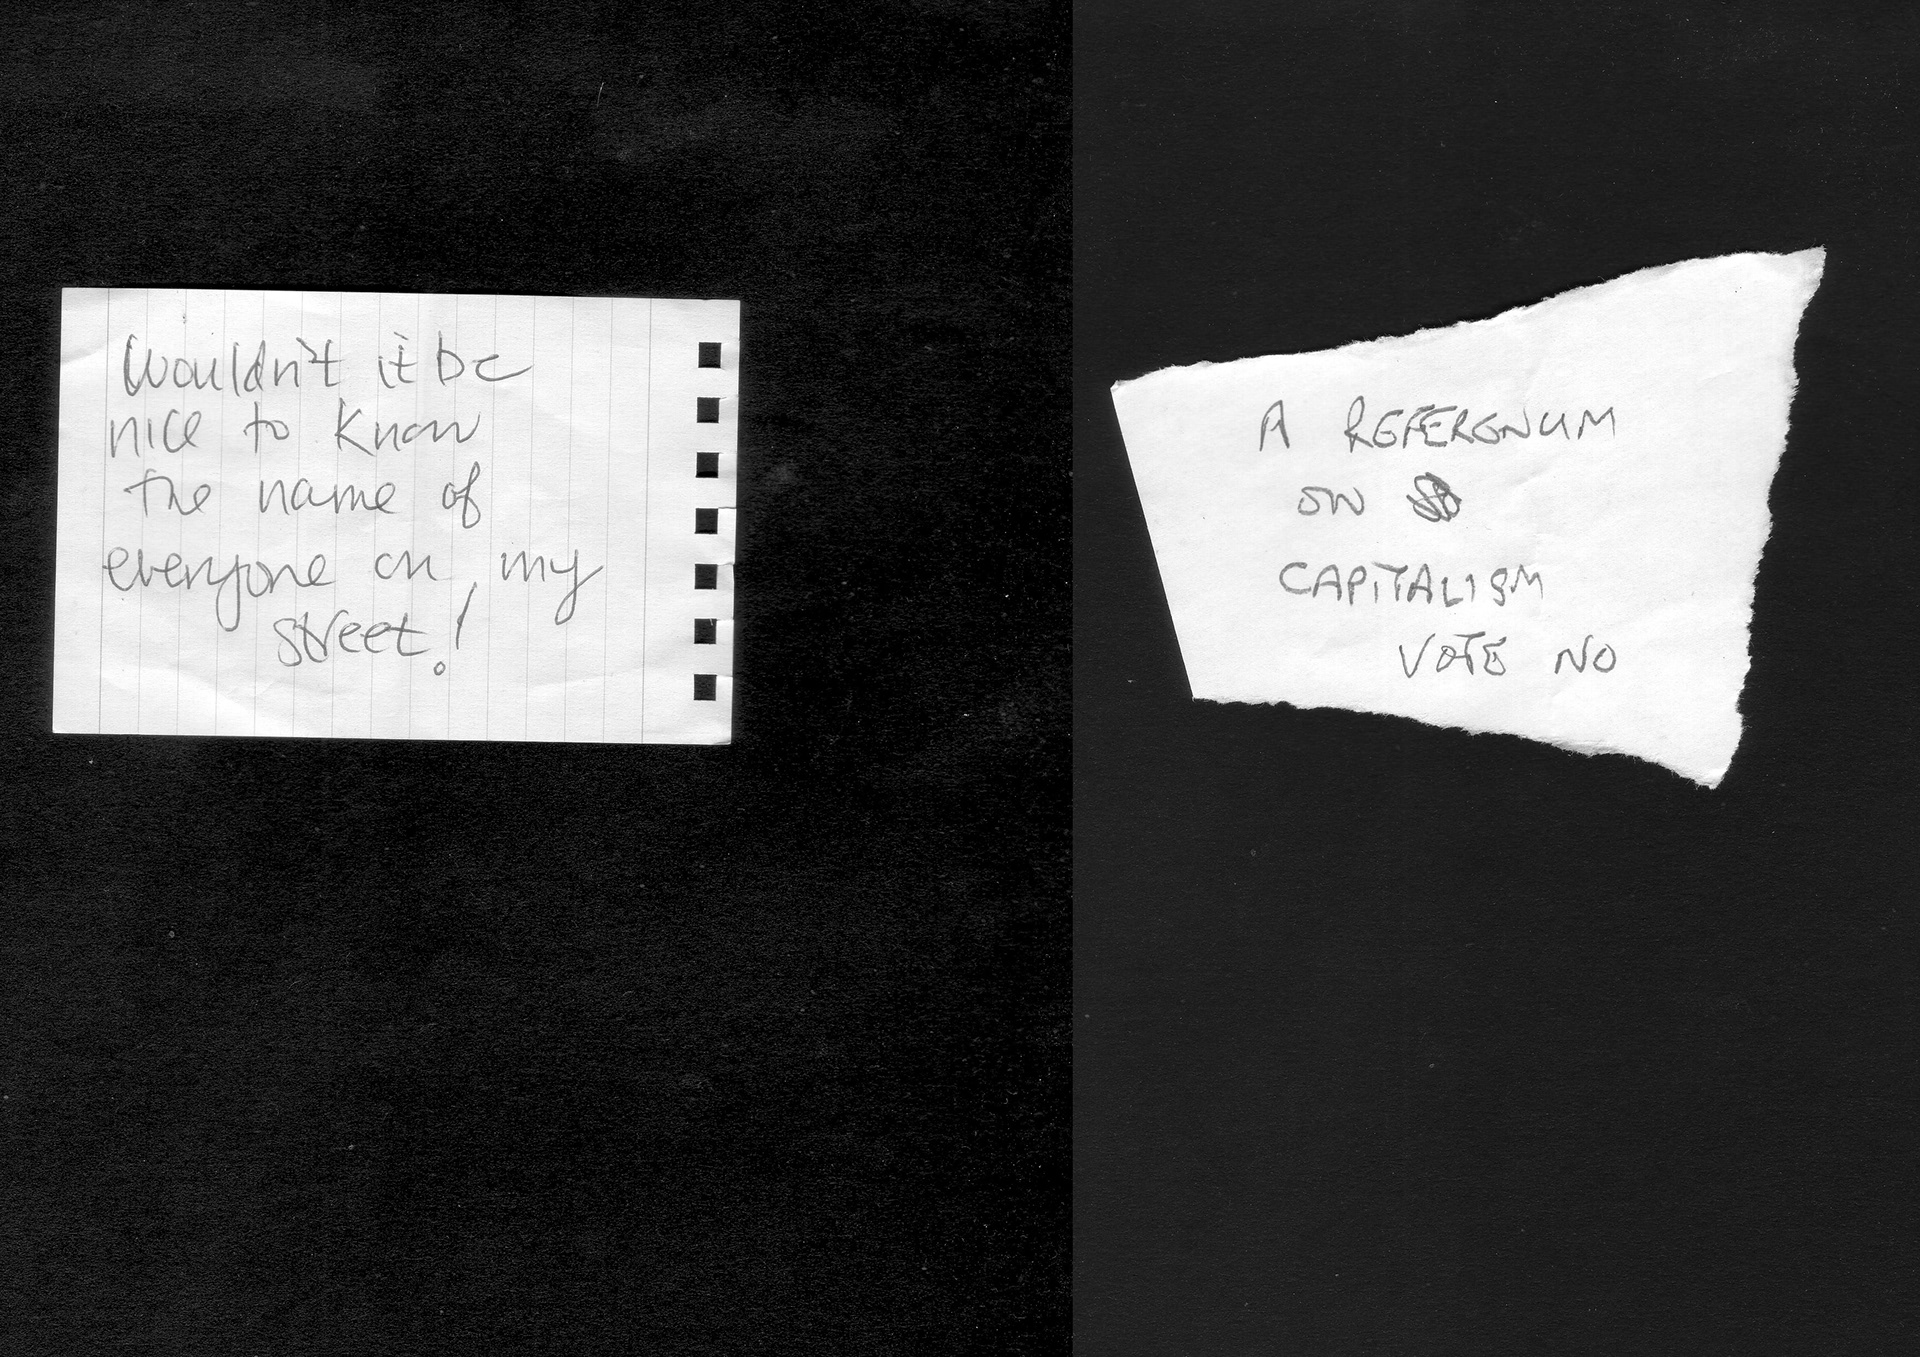 Wouldn't it be
nice to know
the name of
everyone on my
street!
A REFERENUM
ON
CAPITALISM
VOTE NO